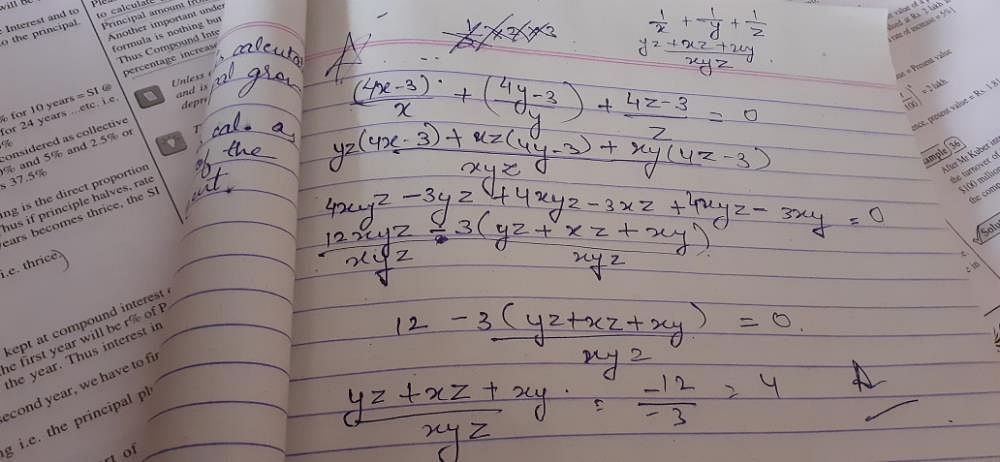 1/x + 1/y + 1/z
yz + xz + xy
xyz
A
(4x-3)/x + (4y-3/y) + 4z-3/z = 0
yz(4x-3) + xz(4y-3) + xy(4z-3)
xyz
4xyz - 3yz + 4xyz - 3xz + 4xyz - 3xy = 0
12xyz/xyz - 3(yz + xz + xy)/xyz
12 - 3(yz+xz+xy)/xyz = 0.
yz + xz + xy/xyz = -12/-3 = 4 A
Interest and to
o the principal.
% for 10 years = SI @
for 24 years ...etc. i.e.
considered as collective
% and 5% and 2.5% or
s 37.5%
ing is the direct proportion
Thus if principle halves, rate
ears becomes thrice, the SI
i.e. thrice)
kept at compound interest
he first year will be r% of P
the year. Thus interest in
second year, we have to fir
ng i.e. the principal pl
rt of
to calculate
Principal amount
Another important under
formula is nothing but
Thus Compound Inte
percentage increase
Unless
and is
depre
calculat
gro
calc. a
of the
= Present value
= 2 lakh.
ample 36
After Mr Kuber in
the turnover o
$100 million
the com
Solu